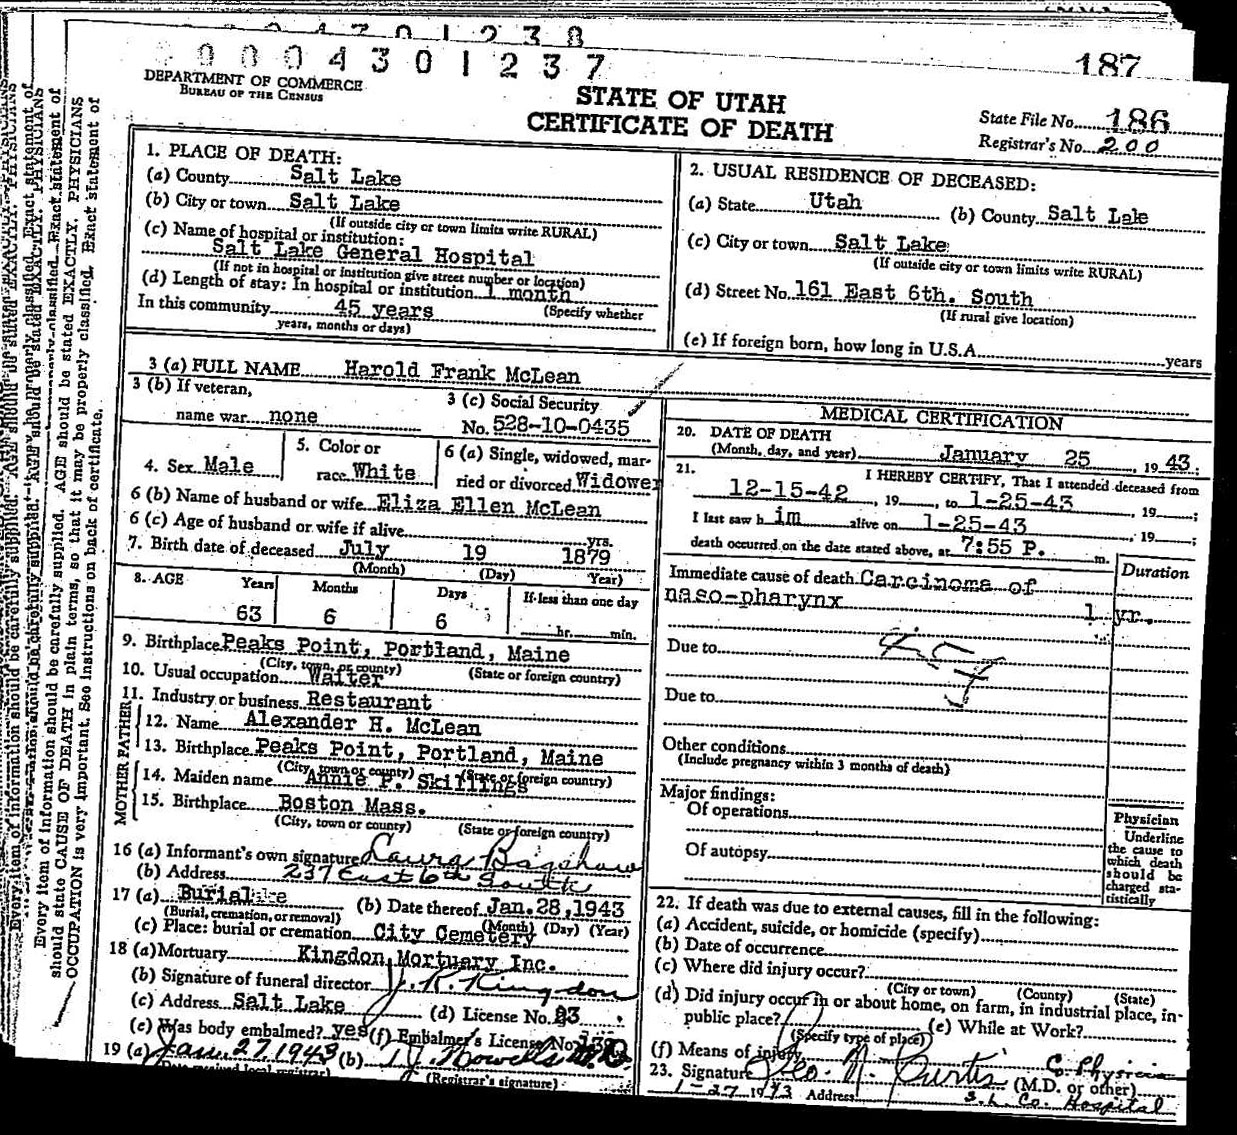 0004301238
0004301237
187
DEPARTMENT OF COMMERCE
BUREAU OF THE CENSUS
STATE OF UTAH
CERTIFICATE OF DEATH
State File No. 186
Registrar's No. 200
Every item of information should be carefully supplied. AGE should be stated EXACTLY. PHYSICIANS
should state CAUSE OF DEATH in plain terms, so that it may be properly classified. Exact statement of
OCCUPATION is very important. See instructions on back of certificate.
1. PLACE OF DEATH:
(a) County Salt Lake
(b) City or town Salt Lake
(If outside city or town limits write RURAL)
(c) Name of hospital or institution:
Salt Lake General Hospital
(If not in hospital or institution give street number or location)
(d) Length of stay: In hospital or institution 1 month
In this community 45 years (Specify whether
years, months or days)
2. USUAL RESIDENCE OF DECEASED:
(a) State Utah (b) County Salt Lake
(c) City or town Salt Lake
(If outside city or town limits write RURAL)
(d) Street No. 161 East 6th. South
(If rural give location)
(e) If foreign born, how long in U.S.A. years
3 (a) FULL NAME Harold Frank McLean
3 (b) If veteran,
name war none
3 (c) Social Security
No. 528-10-0435
4. Sex Male
5. Color or
race White
6 (a) Single, widowed, mar-
ried or divorced Widower
6 (b) Name of husband or wife Eliza Ellen McLean
6 (c) Age of husband or wife if alive yrs.
7. Birth date of deceased July 19 1879
(Month) (Day) Year)
8. AGE Years Months Days If less than one day
63 6 6 hr. min.
9. Birthplace Peaks Point, Portland, Maine
(City, town, or county) (State or foreign country)
10. Usual occupation Waiter
11. Industry or business Restaurant
FATHER
12. Name Alexander H. McLean
13. Birthplace Peaks Point, Portland, Maine
(City, town or county) (State or foreign country)
MOTHER
14. Maiden name Annie P. Skillings
15. Birthplace Boston Mass.
(City, town or county) (State or foreign country)
16 (a) Informant's own signature Laura Bagshaw
(b) Address 237 East 6th South
17 (a) Burial (b) Date thereof Jan. 28, 1943
(Burial, cremation, or removal) (Month) (Day) (Year)
(c) Place: burial or cremation City Cemetery
18 (a) Mortuary Kingdon Mortuary Inc.
(b) Signature of funeral director J. R. Kingdon
(c) Address Salt Lake (d) License No. 93
(e) Was body embalmed? yes (f) Embalmer's License No.
19 (a) Jan. 27, 1943 (b) T.J. Howells M.D.
(Registrar's signature)
MEDICAL CERTIFICATION
20. DATE OF DEATH
(Month, day, and year) January 25, 1943;
21. I HEREBY CERTIFY, That I attended deceased from
12-15-42, 19, to 1-25-43, 19;
I last saw him alive on 1-25-43, 19;
death occurred on the date stated above, at 7:55 P. m.
Duration
Immediate cause of death Carcinoma of
naso-pharynx 1 yr.
Due to
Due to
Other conditions
(Include pregnancy within 3 months of death)
Major findings:
Of operations
Of autopsy
Physician
Underline
the cause to
which death
should be
charged sta-
tistically
22. If death was due to external causes, fill in the following:
(a) Accident, suicide, or homicide (specify)
(b) Date of occurrence
(c) Where did injury occur?
(City or town) (County) (State)
(d) Did injury occur in or about home, on farm, in industrial place, in-
public place? (e) While at Work?
(Specify type of place)
(f) Means of injury
23. Signature Geo. N. Curtis C. Physician
(M.D. or other)
1-27 1943 Address S. L. Co. Hospital